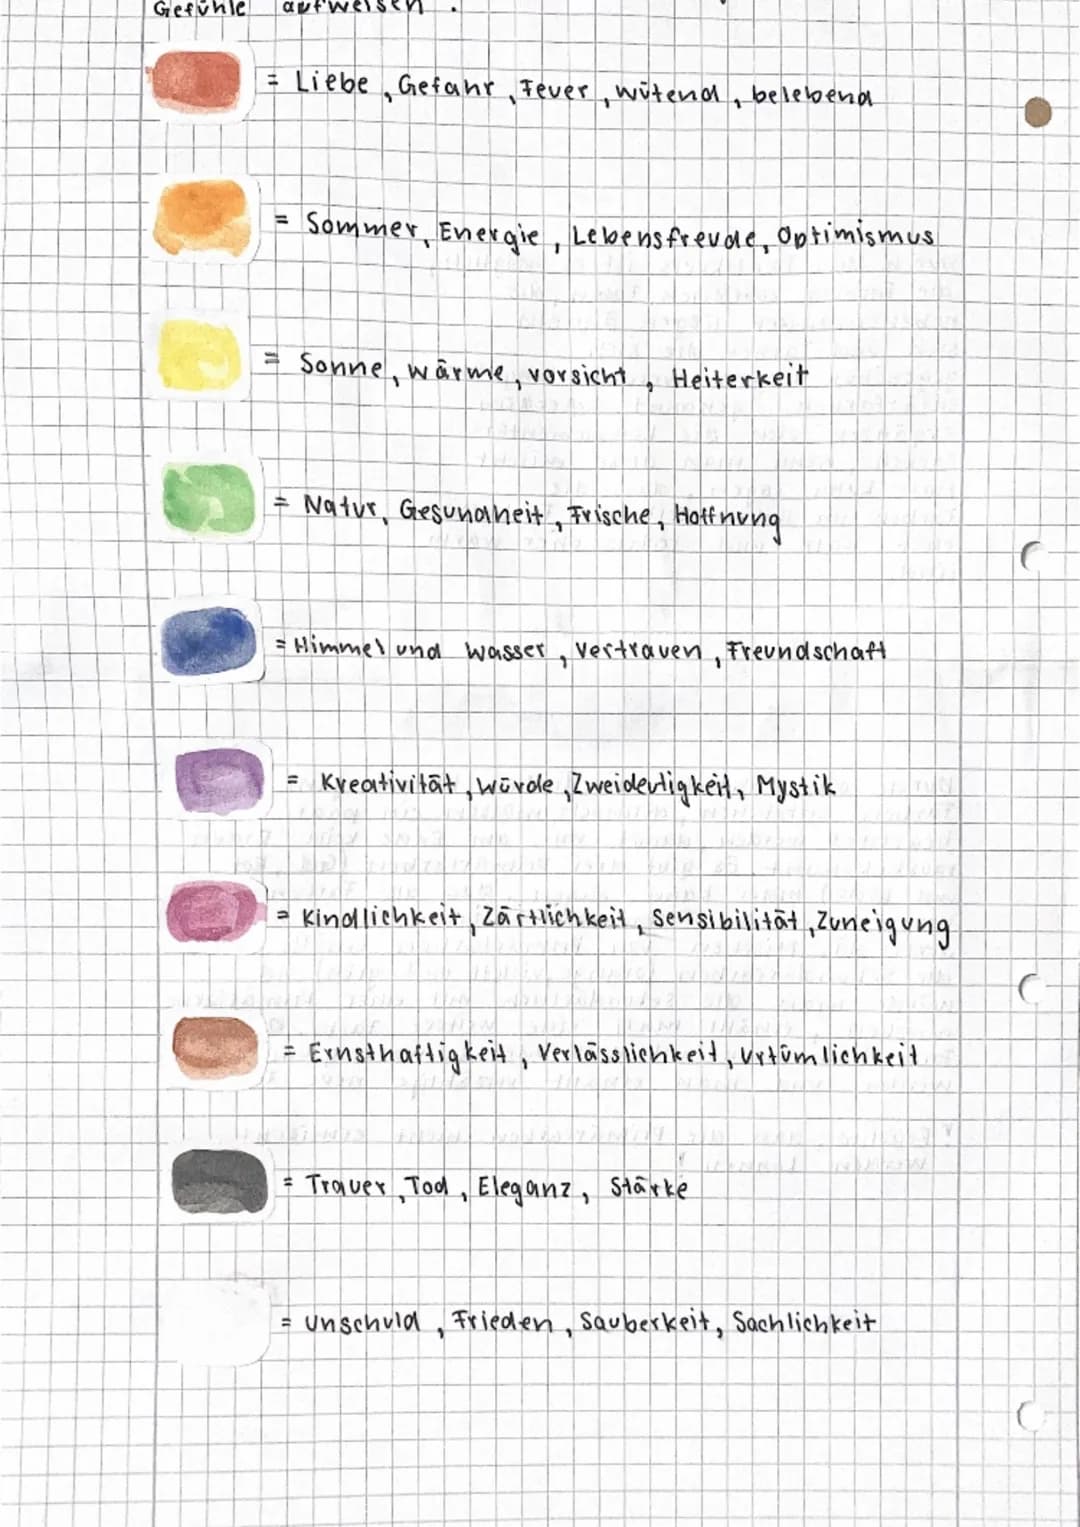 Gefühle aufweisen.
= Liebe, Gefahr, Feuer, wütend, belebend
= Sommer, Energie, Lebensfreude, Optimismus
= Sonne, wärme, vorsicht, Heiterkeit
= Natur, Gesundheit, Frische, Hoffnung
= Himmel und wasser, vertrauen, Freundschaft
= Kreativität, würde, Zweideutigkeit, Mystik
= Kindlichkeit, Zärtlichkeit, Sensibilität, Zuneigung
= Ernsthaftigkeit, Verlässlichkeit, urtümlichkeit
= Trauer, Tod, Eleganz, Stärke
= unschuld, Frieden, Sauberkeit, Sachlichkeit